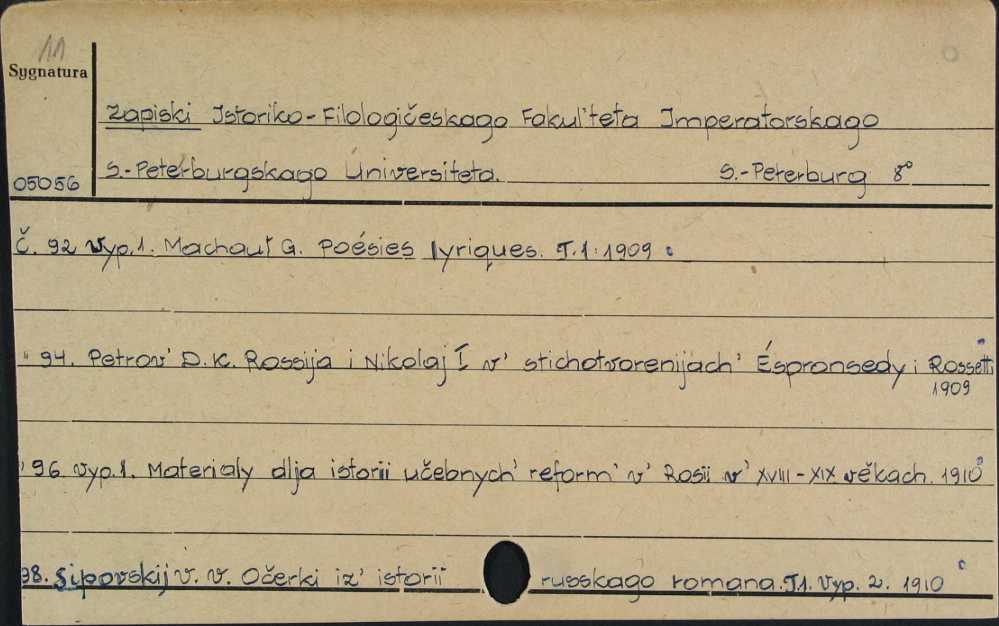 11
Sygnatura
Zapiski Istoriko-Filologičeskago Fakul'teta Imperatorskago
05056 S.-Peterburgskago Universiteta. S.-Peterburg 8°
Č. 92 Vyp. 1. Machaut G. Poésies lyriques. T. 1. 1909
" 94. Petrov' D. K. Rossija i Nikolaj I v' stichotvorenijach' Éspronsedy i Rossetti
1909
" 96 Vyp. 1. Materialy dlja istorii učebnych' reform' v' Rosii v' XVIII-XIX věkach. 1910
98. Sipovskij V. V. Očerki iz' istorii russkago romana. T1. Vyp. 2. 1910